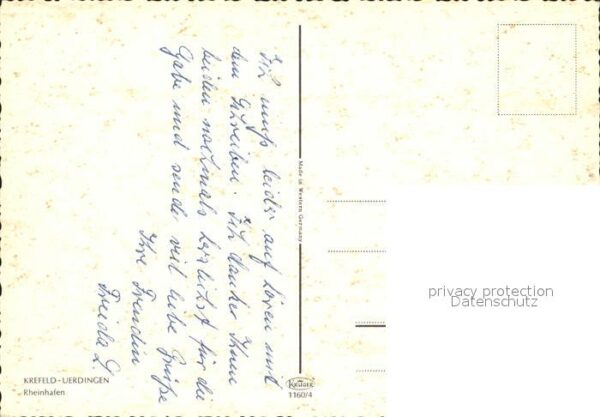 Ich muß leider auf hören mit
dem Schreiben. Ich danke Ihnen
beiden nochmals herzlichst für die
Gabe und sende viel liebe Grüße
Ihre Freundin
Frieda L.
Made in Western Germany
privacy protection
Datenschutz
KREFELD-UERDINGEN
Rheinhafen
KRÜGER
1160/4